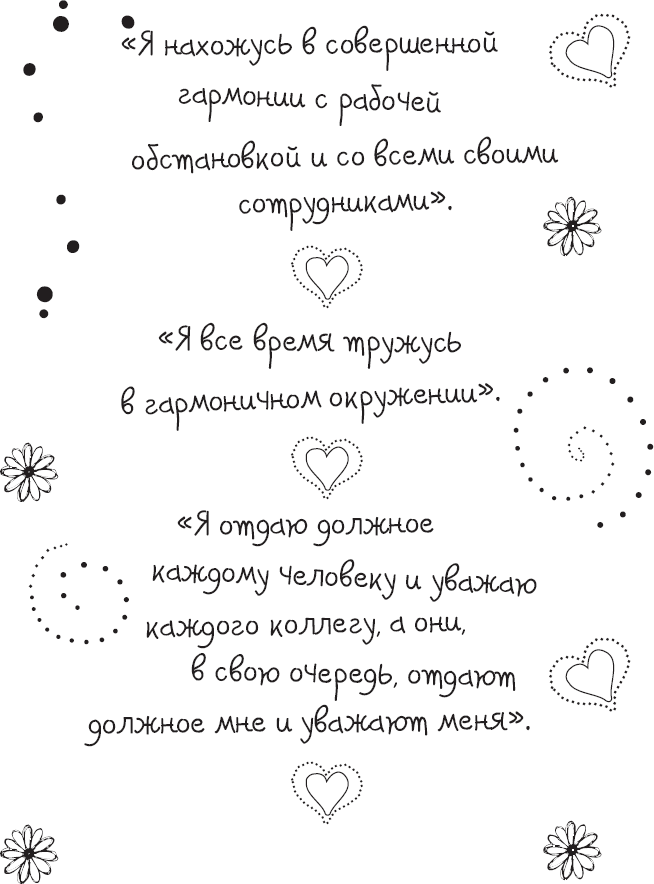 «Я нахожусь в совершенной
гармонии с рабочей
обстановкой и со всеми своими
сотрудниками».
«Я все время тружусь
в гармоничном окружении».
«Я отдаю должное
каждому человеку и уважаю
каждого коллегу, а они,
в свою очередь, отдают
должное мне и уважают меня».